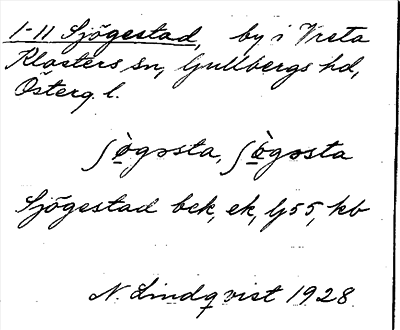 1-11 Sjögestad, by i Vreta
Klosters sn, Gullbergs hd,
Österg. l.
ʃø̀gəsta, ʃø̀gəsta
Sjögestad bek, ek, Gj55, kb
N. Lindqvist 1928